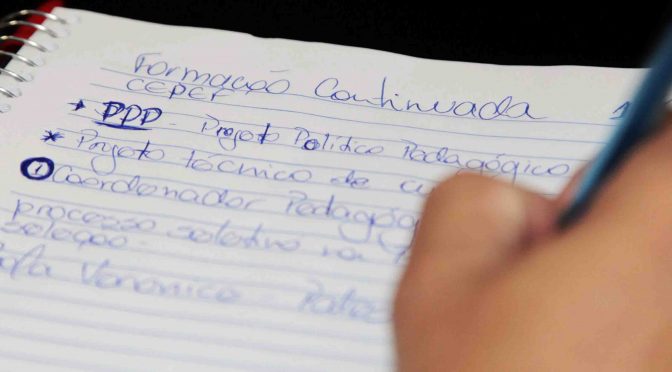 Formação Continuada 1
CEPER
* PPP - Projeto Político Pedagógico
* Projeto técnico de cu
① Coordenador Pedagóg
processo seletivo na
seleção.
Veronica -